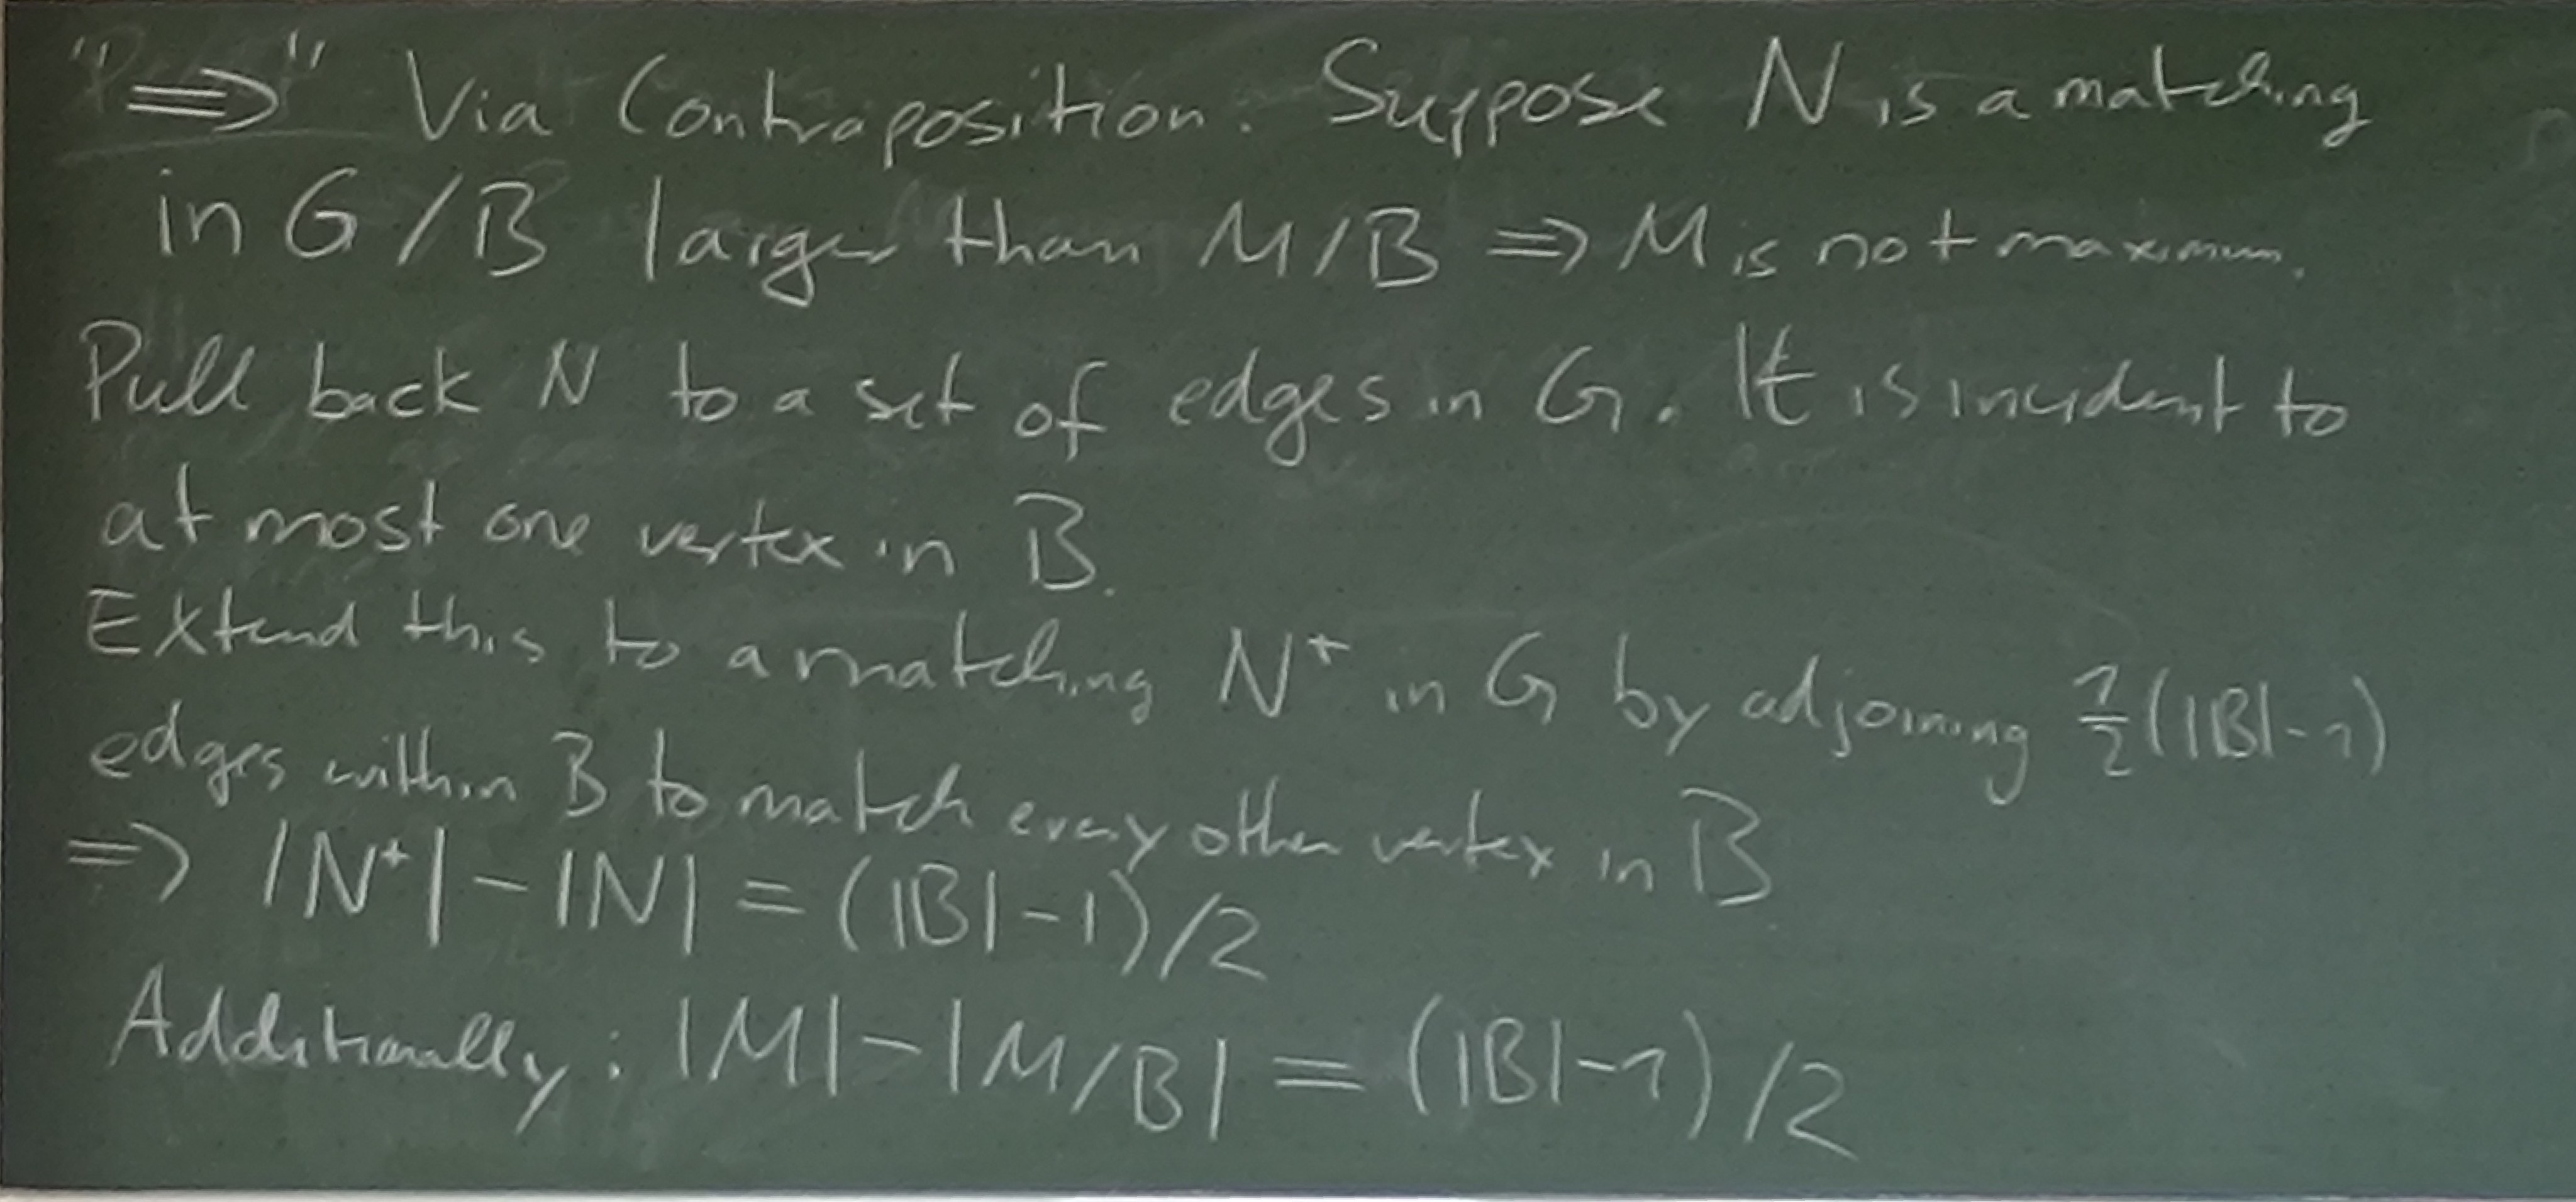 "⇒" Via Contraposition. Suppose N is a matching
in G/B larger than M/B ⇒ M is not maximum.
Pull back N to a set of edges in G. It is incident to
at most one vertex in B.
Extend this to a matching N⁺ in G by adjoining 1/2(|B|-1)
edges within B to match every other vertex in B
⇒ |N⁺| - |N| = (|B|-1)/2
Additionally: |M| - |M/B| = (|B|-1)/2